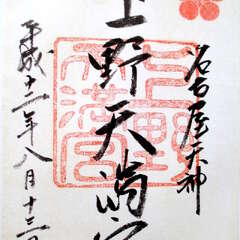 名古屋天神
上野天満宮
平成十二年八月十三日